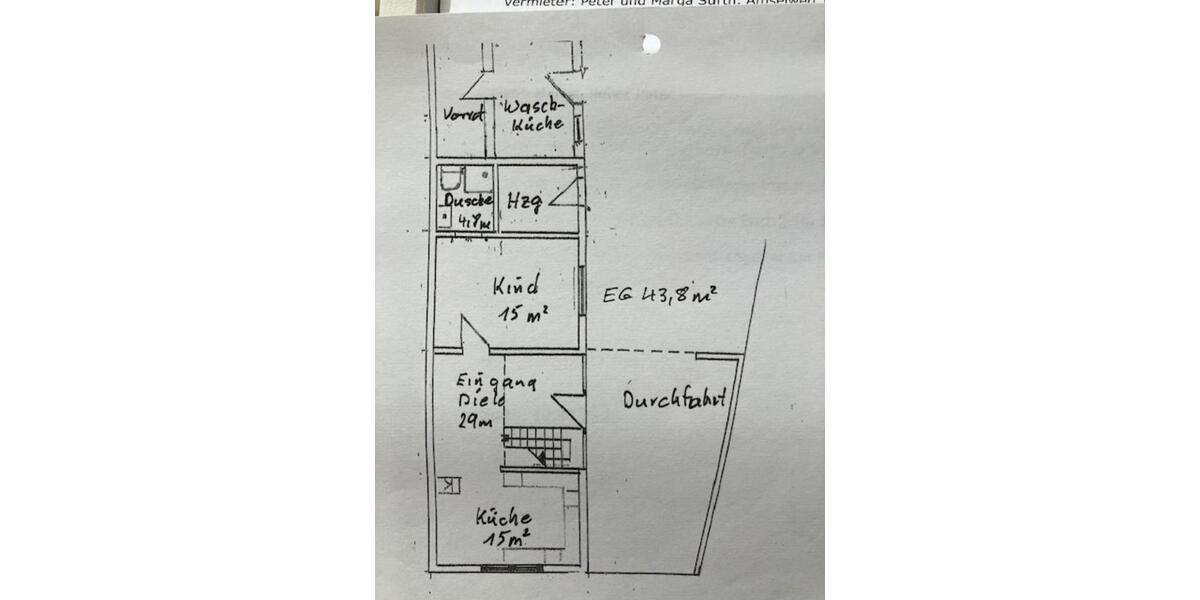 Vermieter: Peter und Marga Surth, Amselweg
Vorrat
Wasch-
Küche
Dusche
4,8m
Hzg
Kind
15 m²
EG 43,8 m²
Eingang
Diele
29m
Durchfahrt
K
Küche
15m²